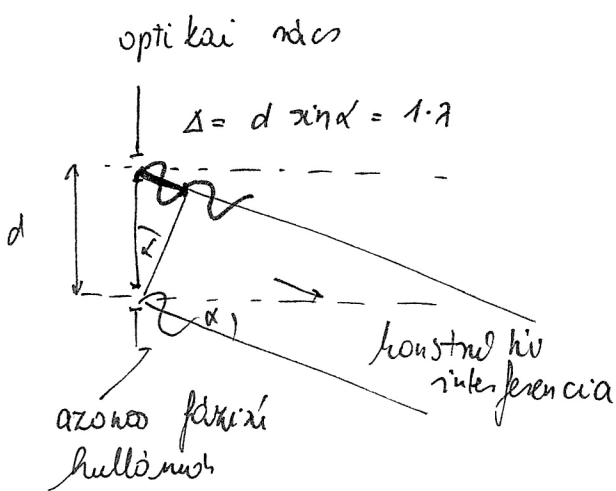 optikai rács
Δ = d sinα = 1·λ
d
α
α
konstruktív
interferencia
azonos fázisú
hullámok